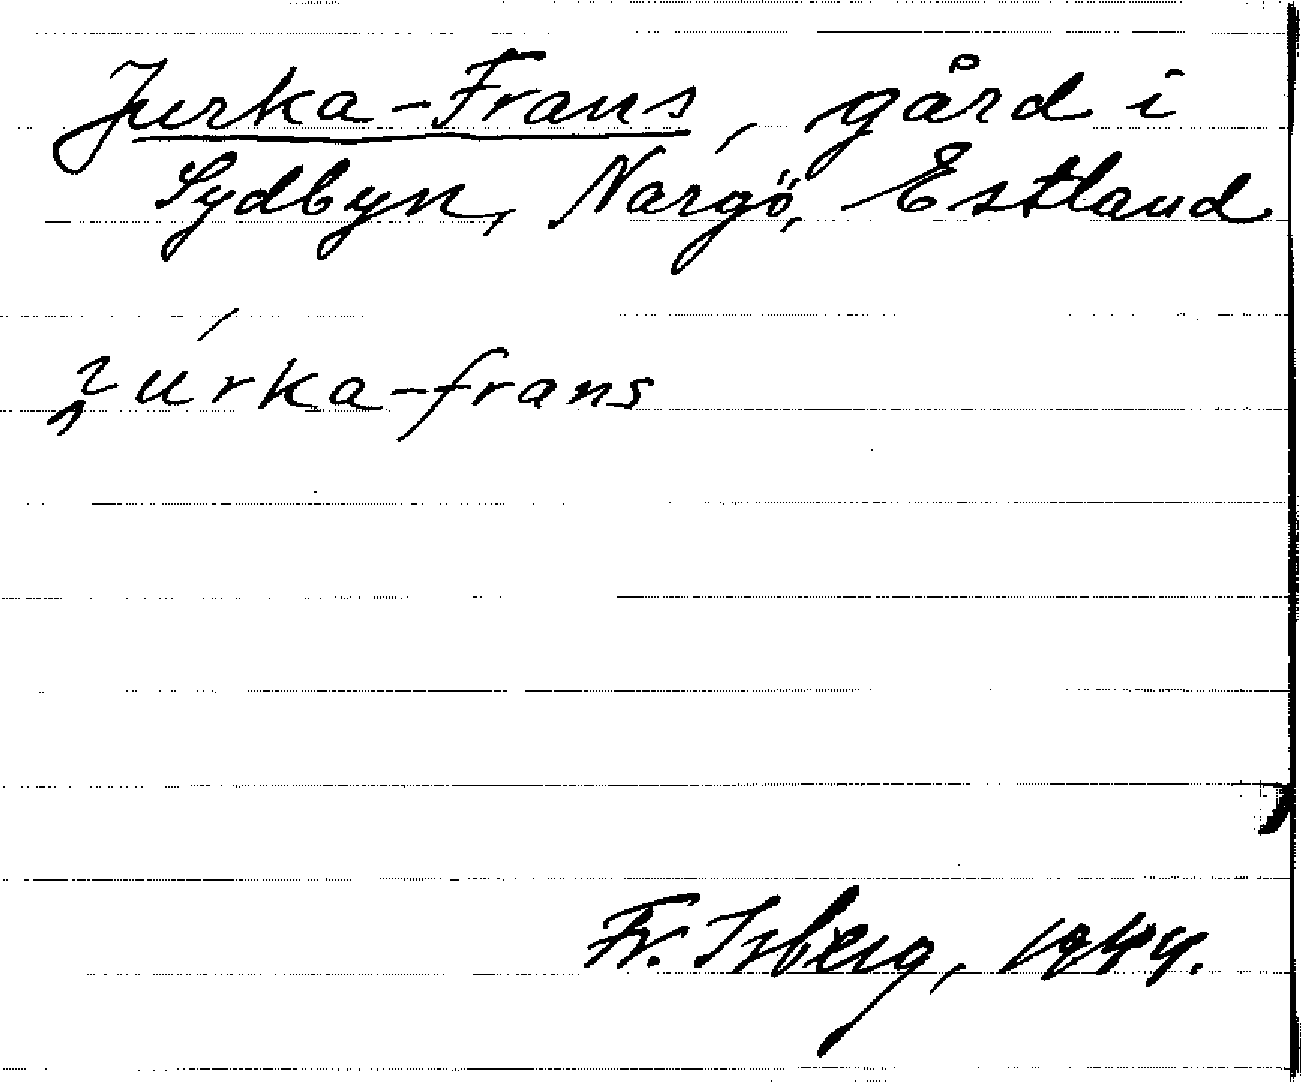 Jurka-Frans, gård i
Sydbyn, Nargö, Estland
zúrka-frans
Fr. Isberg, 1944.